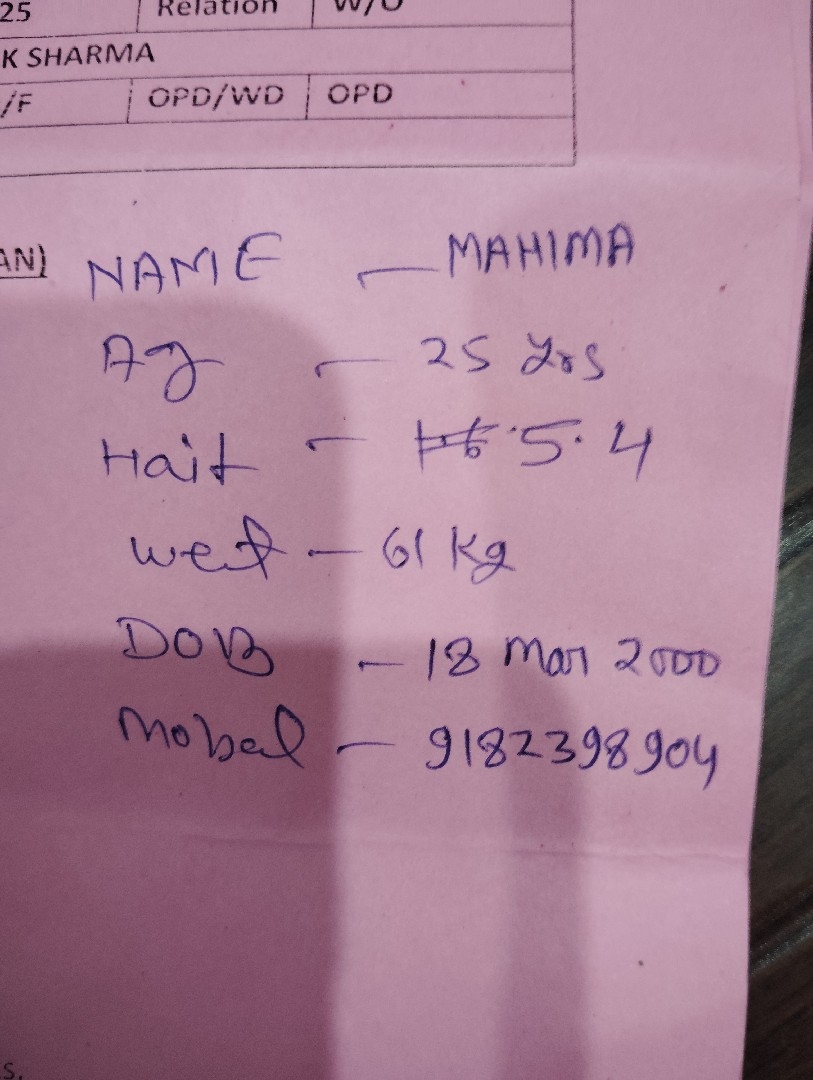 25 Relation W/O
K SHARMA
/F OPD/WD OPD
AN)
NAME - MAHIMA
Ag - 25 yrs
Hait - 5.4
weit - 61 kg
DOB - 18 Mar 2000
Mobal - 9182398904
s.